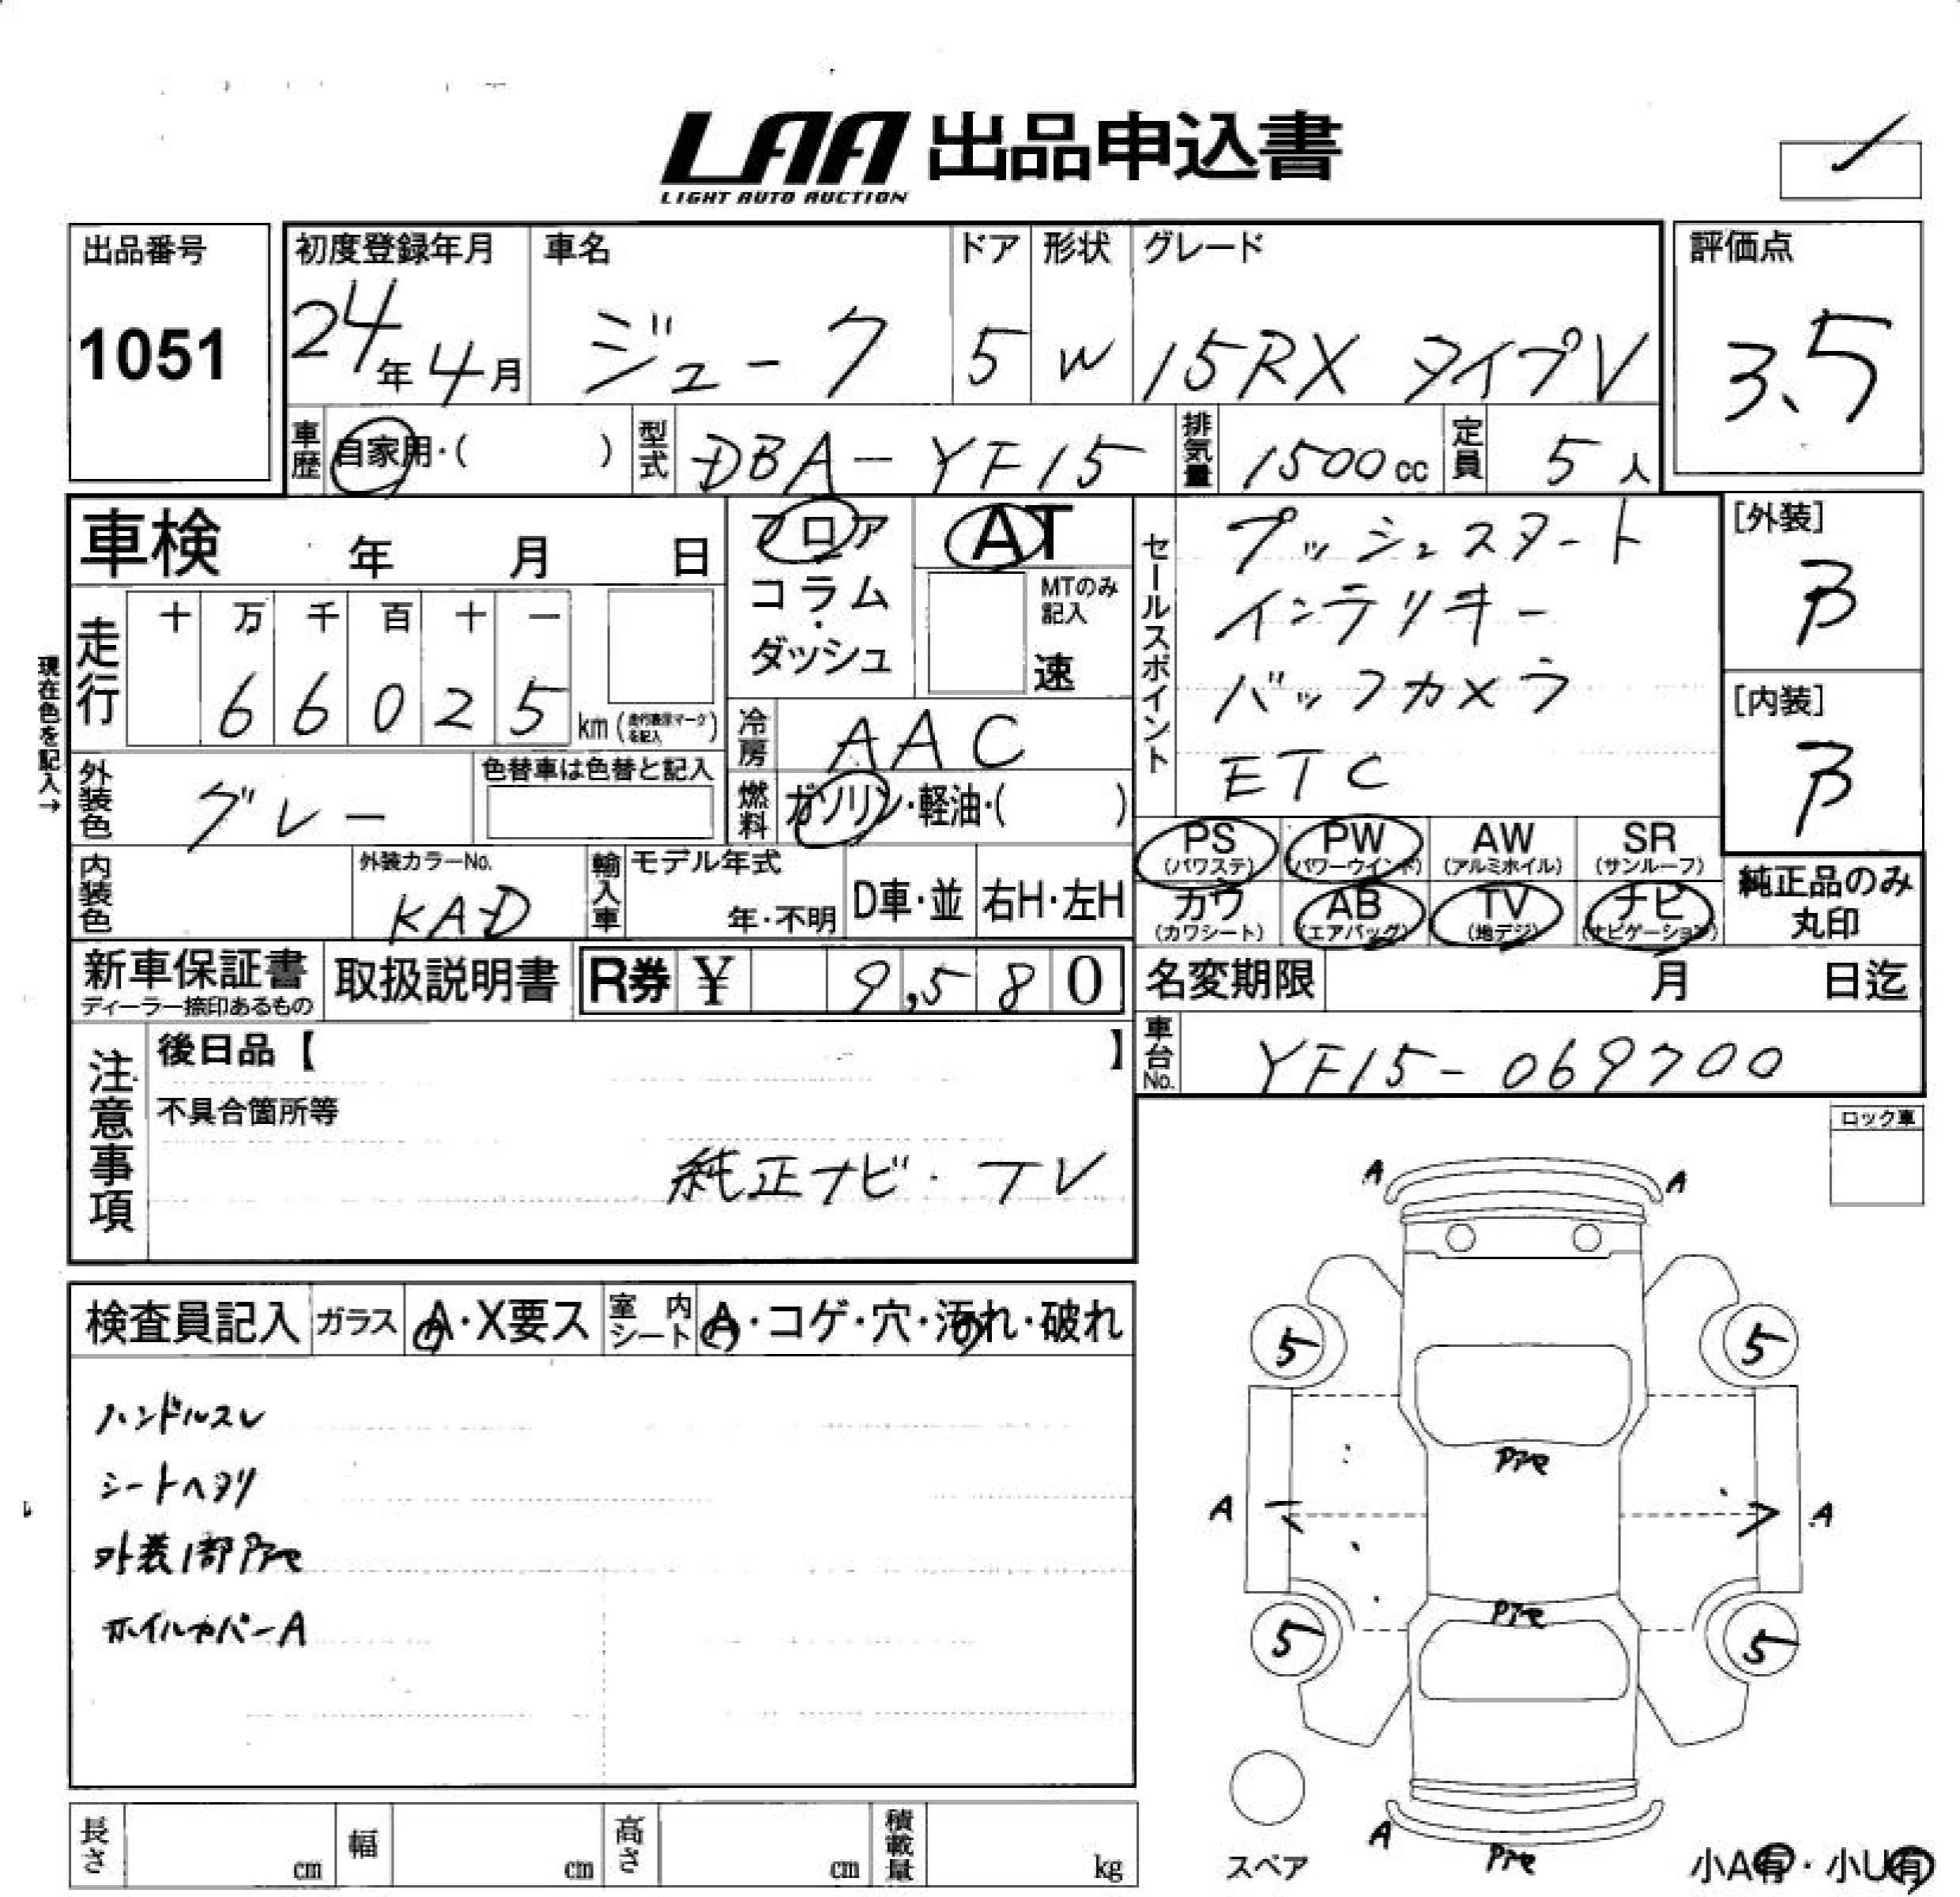 LAA 出品申込書
LIGHT AUTO AUCTION
出品番号
1051
初度登録年月
24年4月
車名
ジューク
ドア
5
形状
W
グレード
15RX タイプV
評価点
3.5
車歴
自家用・( )
型式
DBA-YF15
排気量
1500cc
定員
5人
車検 年 月 日
フロア
コラム
・
ダッシュ
AT
MTのみ
記入
速
セールスポイント
プッシュスタート
インテリキー
バックカメラ
ETC
[外装]
B
[内装]
B
現在色を記入→
走行
十 万 千 百 十 一
6 6 0 2 5
km(走行表示マークを記入)
冷房
AAC
外装色
グレー
色替車は色替と記入
燃料
ガソリン・軽油・( )
PS
(パワステ)
PW
(パワーウインド)
AW
(アルミホイル)
SR
(サンルーフ)
内装色
外装カラーNo.
KAD
輸入車
モデル年式
年・不明
D車・並
右H・左H
カワ
(カワシート)
AB
(エアバッグ)
TV
(地デジ)
ナビ
(ナビゲーション)
純正品のみ
丸印
新車保証書
ディーラー捺印あるもの
取扱説明書
R券 ¥ 9,580
名変期限 月 日迄
車台No.
YF15-069700
注意事項
後日品【 】
不具合箇所等
純正ナビ・TV
ロック車
検査員記入
ガラス
A・X要ス
室内シート
A・コゲ・穴・汚れ・破れ
ハンドルスレ
シートヘタリ
外装1部Pアセ
ホイルカバーA
A A
5 5
Pアセ
A A
Pアセ
5 5
A
Pアセ
スペア
小A有・小U有
長さ cm
幅 cm
高さ cm
積載量 kg